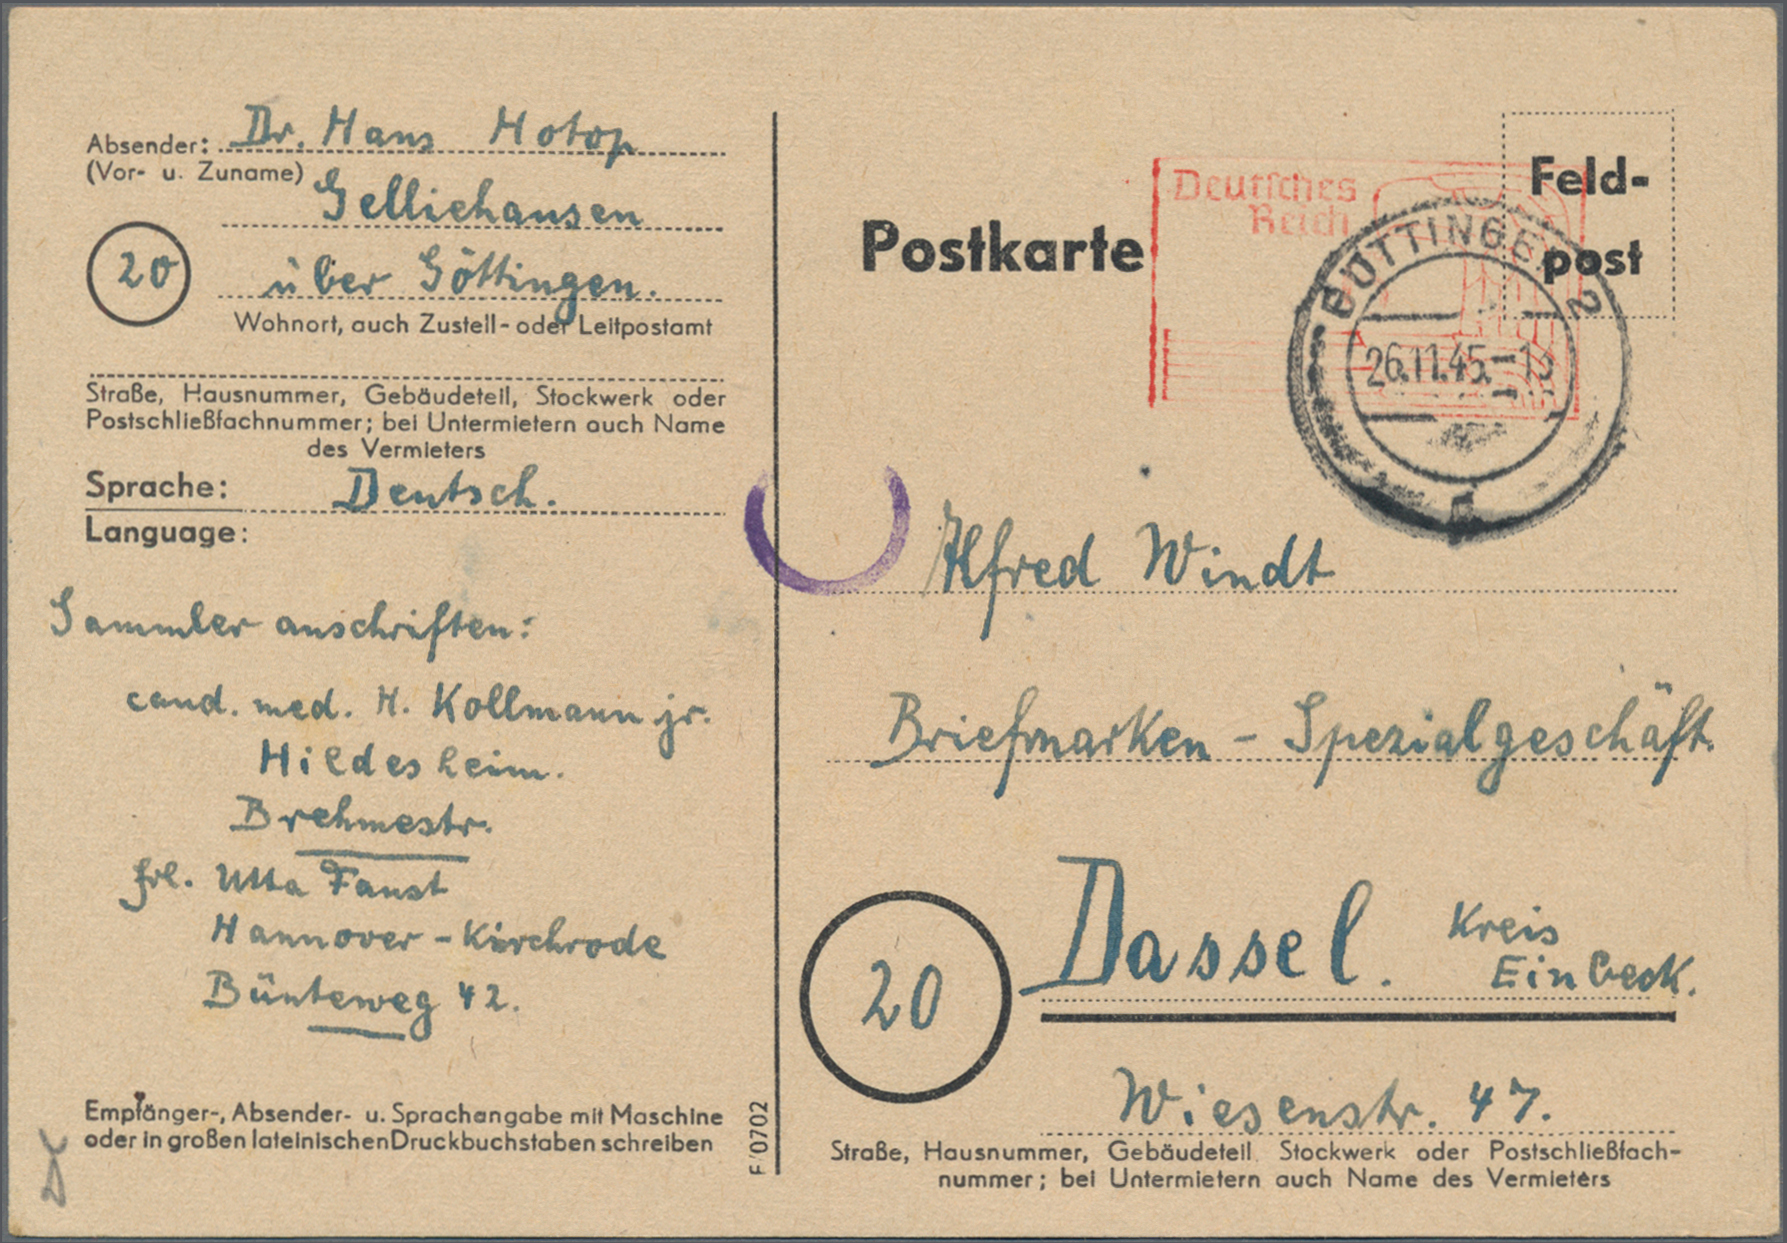 Absender: Dr. Hans Hotop
(Vor- u. Zuname)
Gelliehausen
20 über Göttingen.
Wohnort, auch Zustell- oder Leitpostamt
Straße, Hausnummer, Gebäudeteil, Stockwerk oder
Postschließfachnummer; bei Untermietern auch Name
des Vermieters
Sprache: Deutsch.
Language:
Sammleranschriften:
cand. med. H. Kollmann jr.
Hildesheim.
Brehmestr.
Frl. Utta Faust
Hannover-Kirchrode
Bünteweg 42.
Empfänger-, Absender- u. Sprachangabe mit Maschine
oder in großen lateinischen Druckbuchstaben schreiben
F/0702
Postkarte
Deutsches
Reich
Feld-
post
26.11.45.-13
Alfred Windt
Briefmarken-Spezialgeschäft.
20 Dassel. Kreis
Einbeck.
Wiesenstr. 47.
Straße, Hausnummer, Gebäudeteil, Stockwerk oder Postschließfach-
nummer; bei Untermietern auch Name des Vermieters